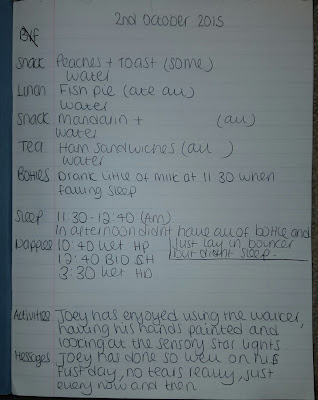 2nd October 2015
Bkf
Snack Peaches + Toast (some)
water
Lunch Fish pie (ate all)
water
Snack mandarin + (all)
water
Tea Ham sandwiches (all )
water
Bottles Drank little of milk at 11 30 when
falling sleep
Sleep 11:30 - 12:40 (Am)
In afternoon didnt have all of bottle and
just lay in bouncer
but didnt sleep.
Nappies 10:40 wet HP
12:40 BIO SH
3:30 wet HD
Activities Joey has enjoyed using the walker,
having his hands painted and
looking at the sensory star lights
Messages Joey has done so well on his
first day, no tears really, just
every now and then